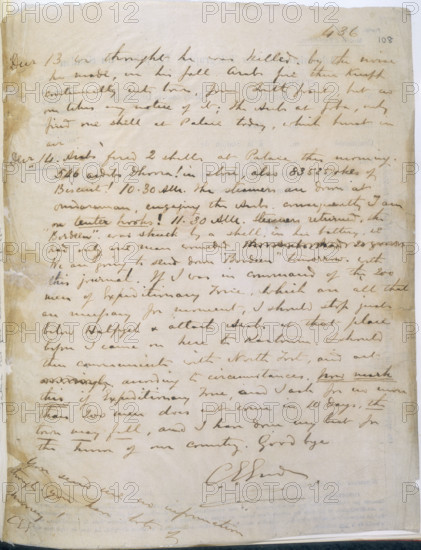 436
108
Decr 13 we thought he was killed, by the noise
he made, in his fall. Arabs fire their Krupps
continually into town, from South front, but no
one takes any notice of it; the Arabs at Goba, only
fired one shell at Palace today, which burst in
air.
Decr 14. Arabs fired 2 shells at Palace this morning.
546 ardebs Dhoora! in store, also 83525 okes of
Biscuit! 10.30 A.M. the steamers are down at
Omdurman, engaging the Arabs. consequently I am
on tenter hooks! 11.30 A.M. steamers returned, the
"Bordeen" was struck by a shell, in her battery, we
had only one man wounded
We are going to send down "Bordeen" tomorrow with
this journal. If I was in command of the 200
men of Expeditionary Force, which are all that
are necessary for moment, I should stop just
below Halfyeh & attack Arabs at that place
before I came on here to Kartoum. I should
then communicate with North Fort, and act
according to circumstances. Now mark
this, if Expeditionary Force, and I ask for no more
than 200 men does not come in 10 days, the
town may fall, and I have done my best for
the honor of our country. Good bye
C G Gordon
You send me no information
though you have lots of
money!
CGG